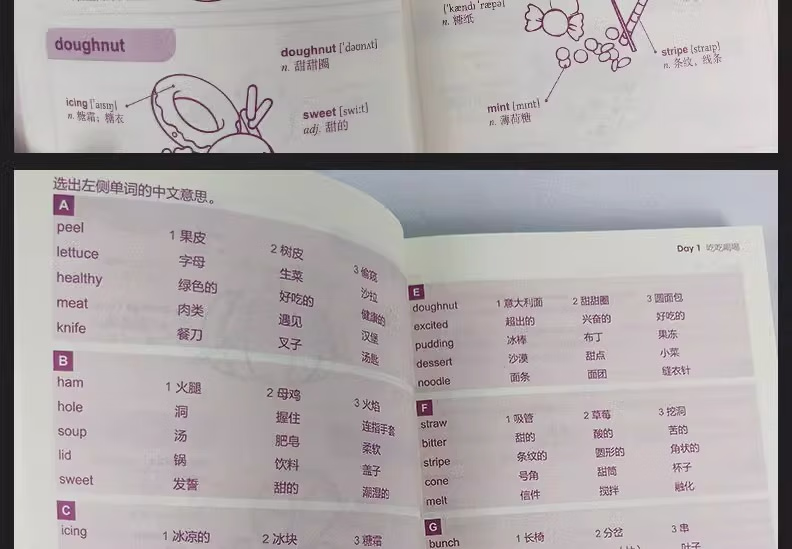 doughnut
doughnut ['dəʊnʌt]
n. 甜甜圈
icing ['aɪsɪŋ]
n. 糖霜；糖衣
sweet [swiːt]
adj. 甜的
['kændɪ 'ræpə]
n. 糖纸
stripe [straɪp]
n. 条纹，线条
mint [mɪnt]
n. 薄荷糖
选出左侧单词的中文意思。
A
peel 1 果皮 2 树皮 3 偷窥
lettuce 字母 生菜 沙拉
healthy 绿色的 好吃的 健康的
meat 肉类 遇见 汉堡
knife 餐刀 叉子 汤匙
B
ham 1 火腿 2 母鸡 3 火焰
hole 洞 握住 连指手套
soup 汤 肥皂 柔软
lid 锅 饮料 盖子
sweet 发誓 甜的 潮湿的
C
icing 1 冰凉的 2 冰块 3 糖霜
Day 1 吃吃喝喝
E
doughnut 1 意大利面 2 甜甜圈 3 圆面包
excited 超出的 兴奋的 好吃的
pudding 冰棒 布丁 果冻
dessert 沙漠 甜点 小菜
noodle 面条 面团 缝衣针
F
straw 1 吸管 2 草莓 3 挖洞
bitter 甜的 酸的 苦的
stripe 条纹的 圆形的 角状的
cone 号角 甜筒 杯子
melt 信件 搅拌 融化
G
bunch 1 长椅 2 分岔 3 串